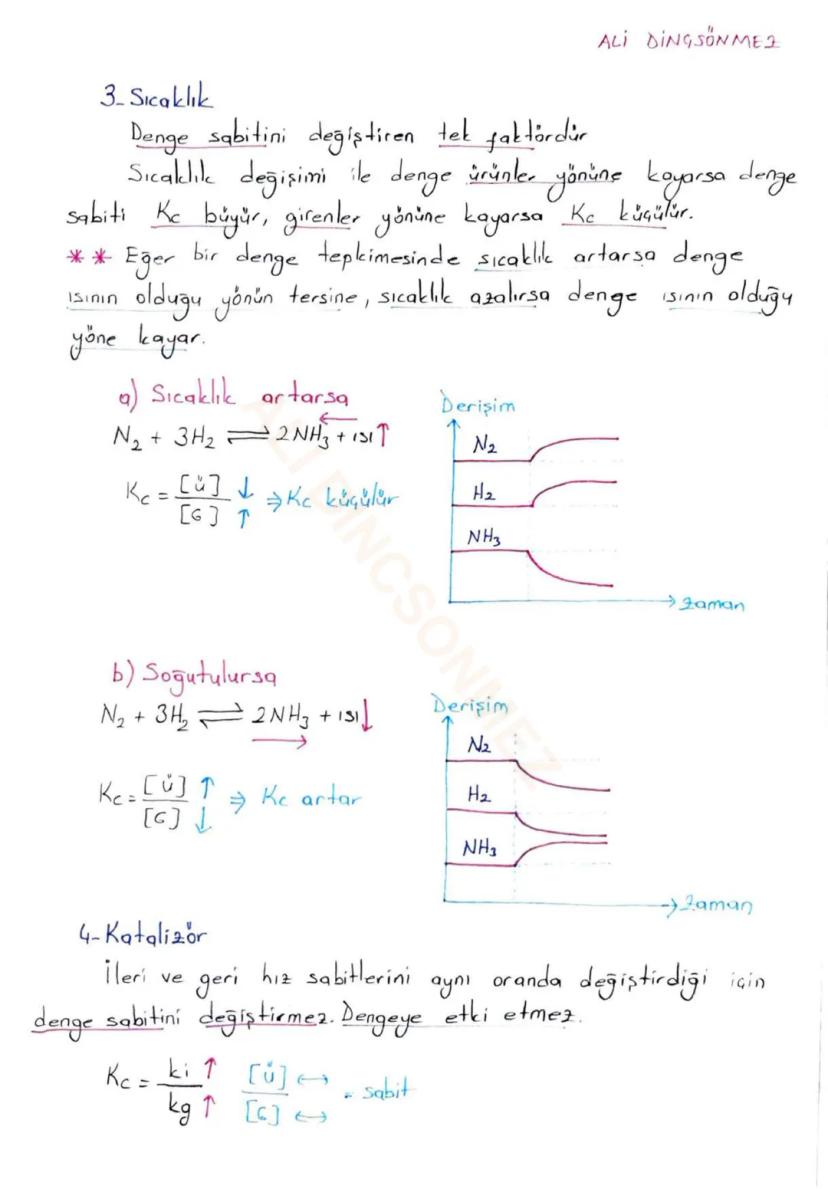 ALİ DİNÇSÖNMEZ
3- Sıcaklık
Denge sabitini değiştiren tek faktördür
Sıcaklık değişimi ile denge ürünler yönüne kayarsa denge
sabiti Kc büyür, girenler yönüne kayarsa Kc küçülür.
** Eğer bir denge tepkimesinde sıcaklık artarsa denge
ısının olduğu yönün tersine, sıcaklık azalırsa denge ısının olduğu
yöne kayar.
a) Sıcaklık artarsa
N₂ + 3H₂ ⇌ 2NH₃ + ısı↑
←
Kc = [Ü]↓ / [G]↑ ⇒ Kc küçülür
Derişim
N₂
H₂
NH₃
Zaman
b) Soğutulursa
N₂ + 3H₂ ⇌ 2NH₃ + ısı↓
→
Kc = [Ü]↑ / [G]↓ ⇒ Kc artar
Derişim
N₂
H₂
NH₃
Zaman
4- Katalizör
İleri ve geri hız sabitlerini aynı oranda değiştirdiği için
denge sabitini değiştirmez. Dengeye etki etmez.
Kc = ki↑ / kg↑ [Ü]↔ / [G]↔ = sabit
ALİ DİNCSONMEZ